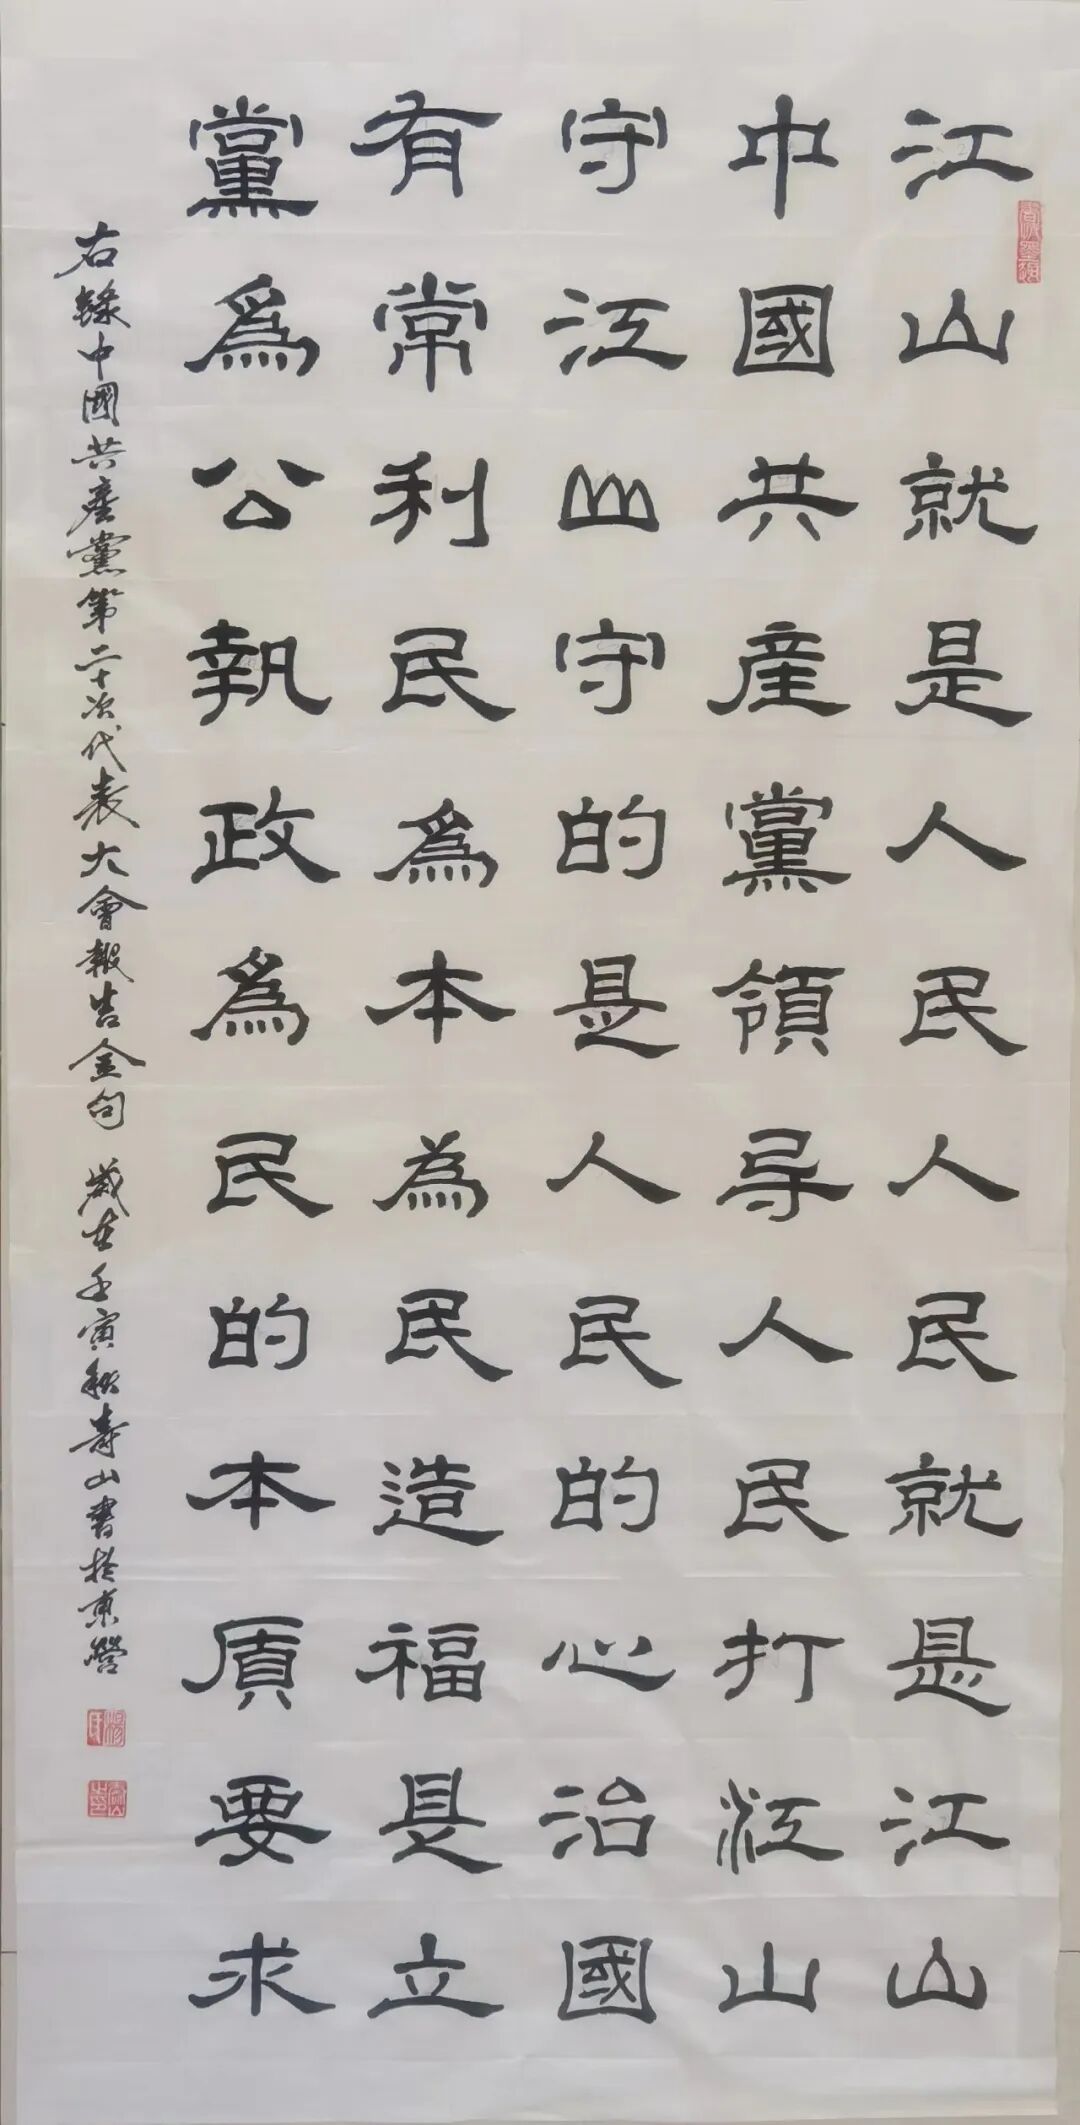 江山就是人民人民就是江山
中國共産黨領导人民打江山
守江山守的是人民的心治國
有常利民爲本為民造福是立
黨爲公執政爲民的本質要求
右録中國共產黨第二十次代表大會報告金句 歲在壬寅秋壽山書於東營